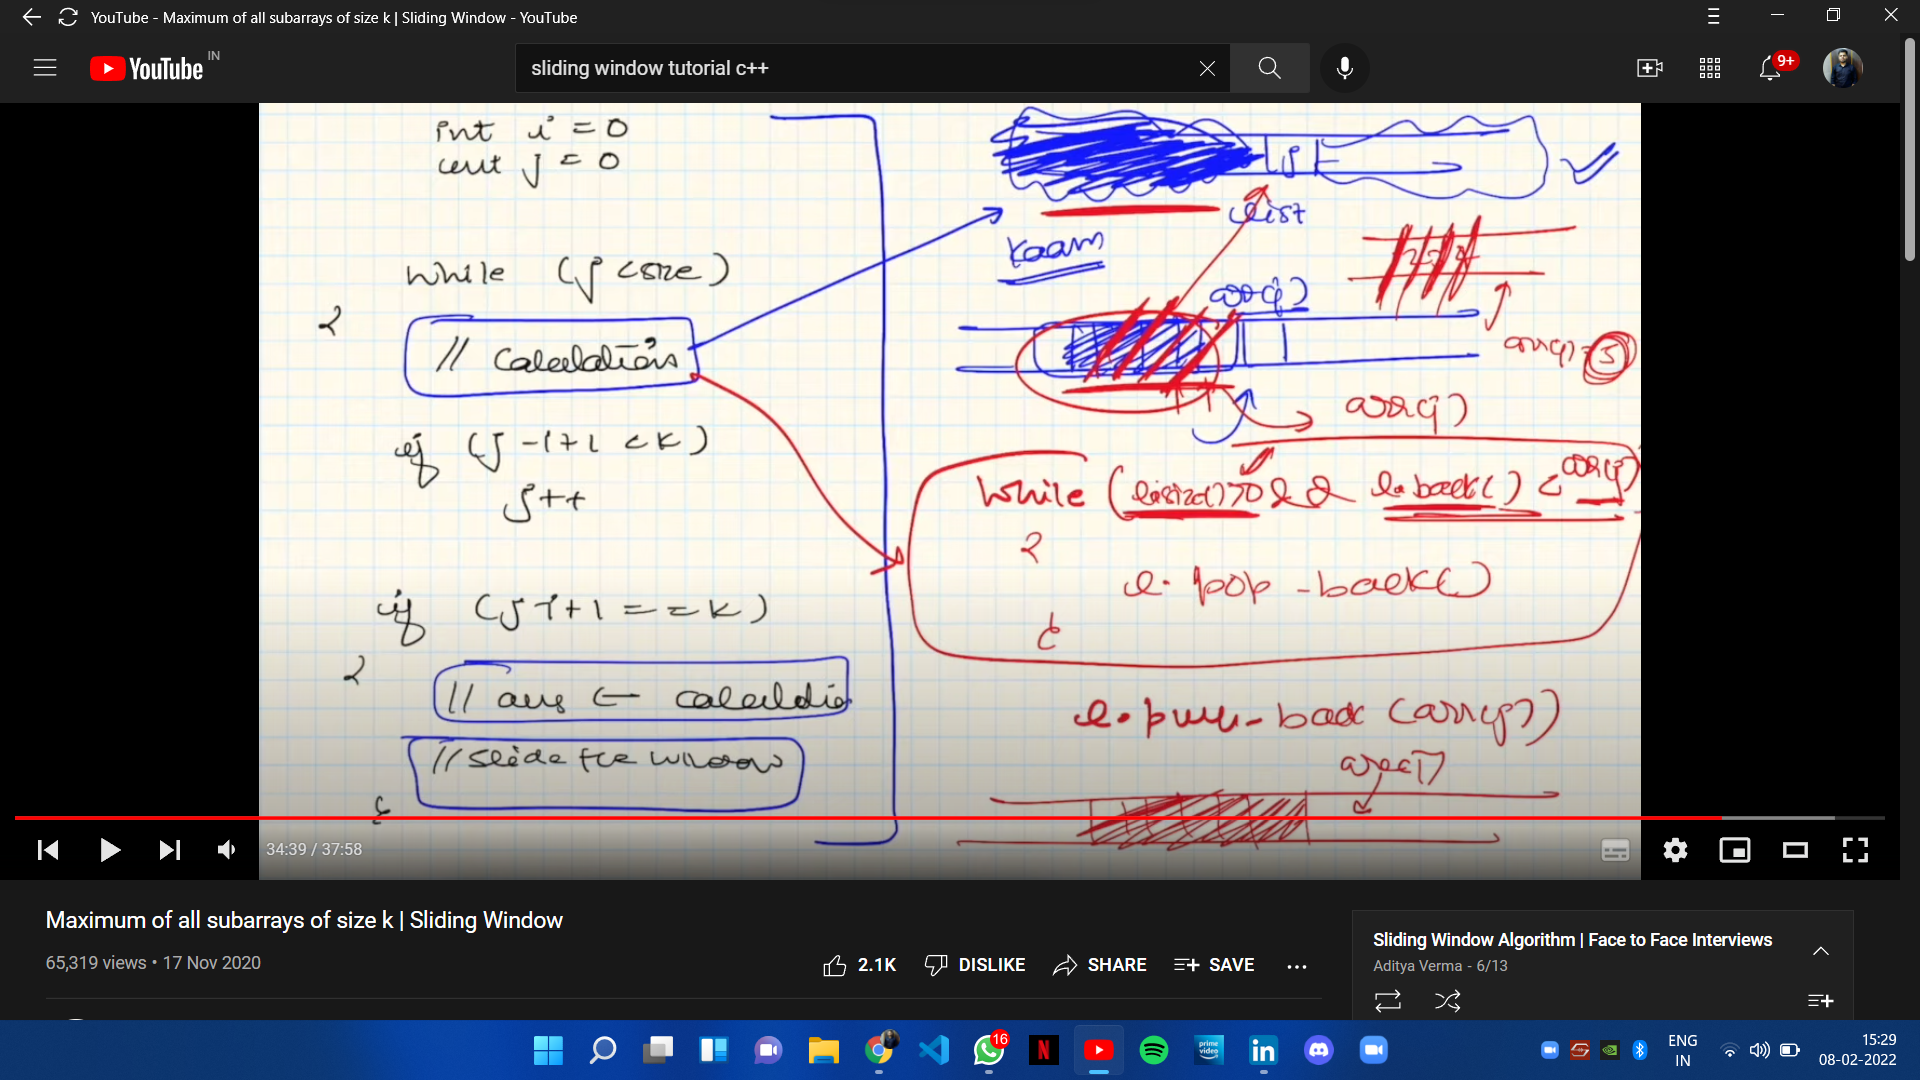 YouTube - Maximum of all subarrays of size k | Sliding Window - YouTube
YouTube IN
sliding window tutorial c++
9+
int i = 0
int j = 0
while (j < size)
// Calculations
if (j-i+1 < k)
j++
if (j-i+1 == k)
// ans ← calculatio
// slide the window
list
kaam
arr[j]
arr[j] = 5
arr[j]
while (l.size() > 0 && l.back() < arr[j])
l.pop-back()
l.push-back (arr[j])
arr[j]
34:39 / 37:58
Maximum of all subarrays of size k | Sliding Window
65,319 views • 17 Nov 2020
2.1K DISLIKE SHARE SAVE
Sliding Window Algorithm | Face to Face Interviews
Aditya Verma - 6/13
16
N
prime video
in
ENG
IN
15:29
08-02-2022